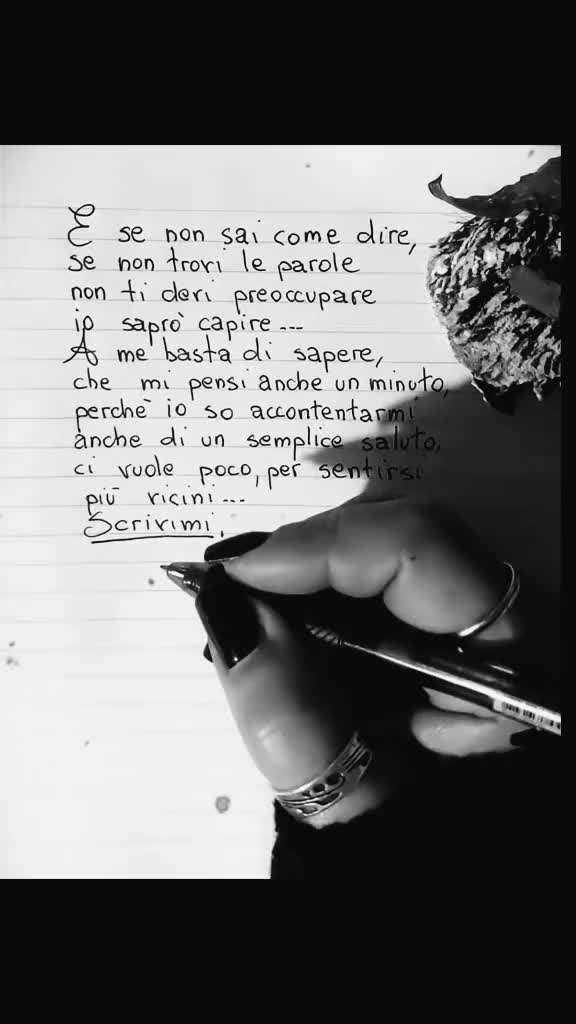 E se non sai come dire,
se non trovi le parole
non ti devi preoccupare
io saprò capire...
A me basta di sapere,
che mi pensi anche un minuto,
perchè io so accontentarmi
anche di un semplice saluto,
ci vuole poco, per sentirsi
più vicini...
Scrivimi.